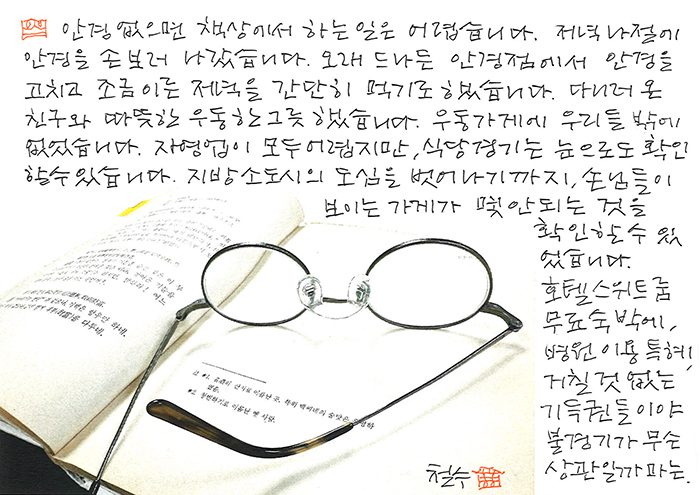 안경 없으면 책상에서 하는 일은 어렵습니다. 저녁 나절에
안경을 손보러 나갔습니다. 오래 드나든 안경점에서 안경을
고치고 조금 이른 저녁을 간단히 먹기로 했습니다. 다니러 온
친구와 따뜻한 우동 한그릇 했습니다. 우동가게에 우리들 밖에
없었습니다. 자영업이 모두 어렵지만, 식당경기는 눈으로도 확인
할 수 있습니다. 지방 소도시의 도심을 벗어나기까지, 손님들이
보이는 가게가 몇 안되는 것을
확인할 수 있
었습니다.
호텔스위트룸
무료숙박에,
병원 이용 특혜,
거칠 것 없는
기득권들이야
불경기가 무슨
상관일까마는.
철수